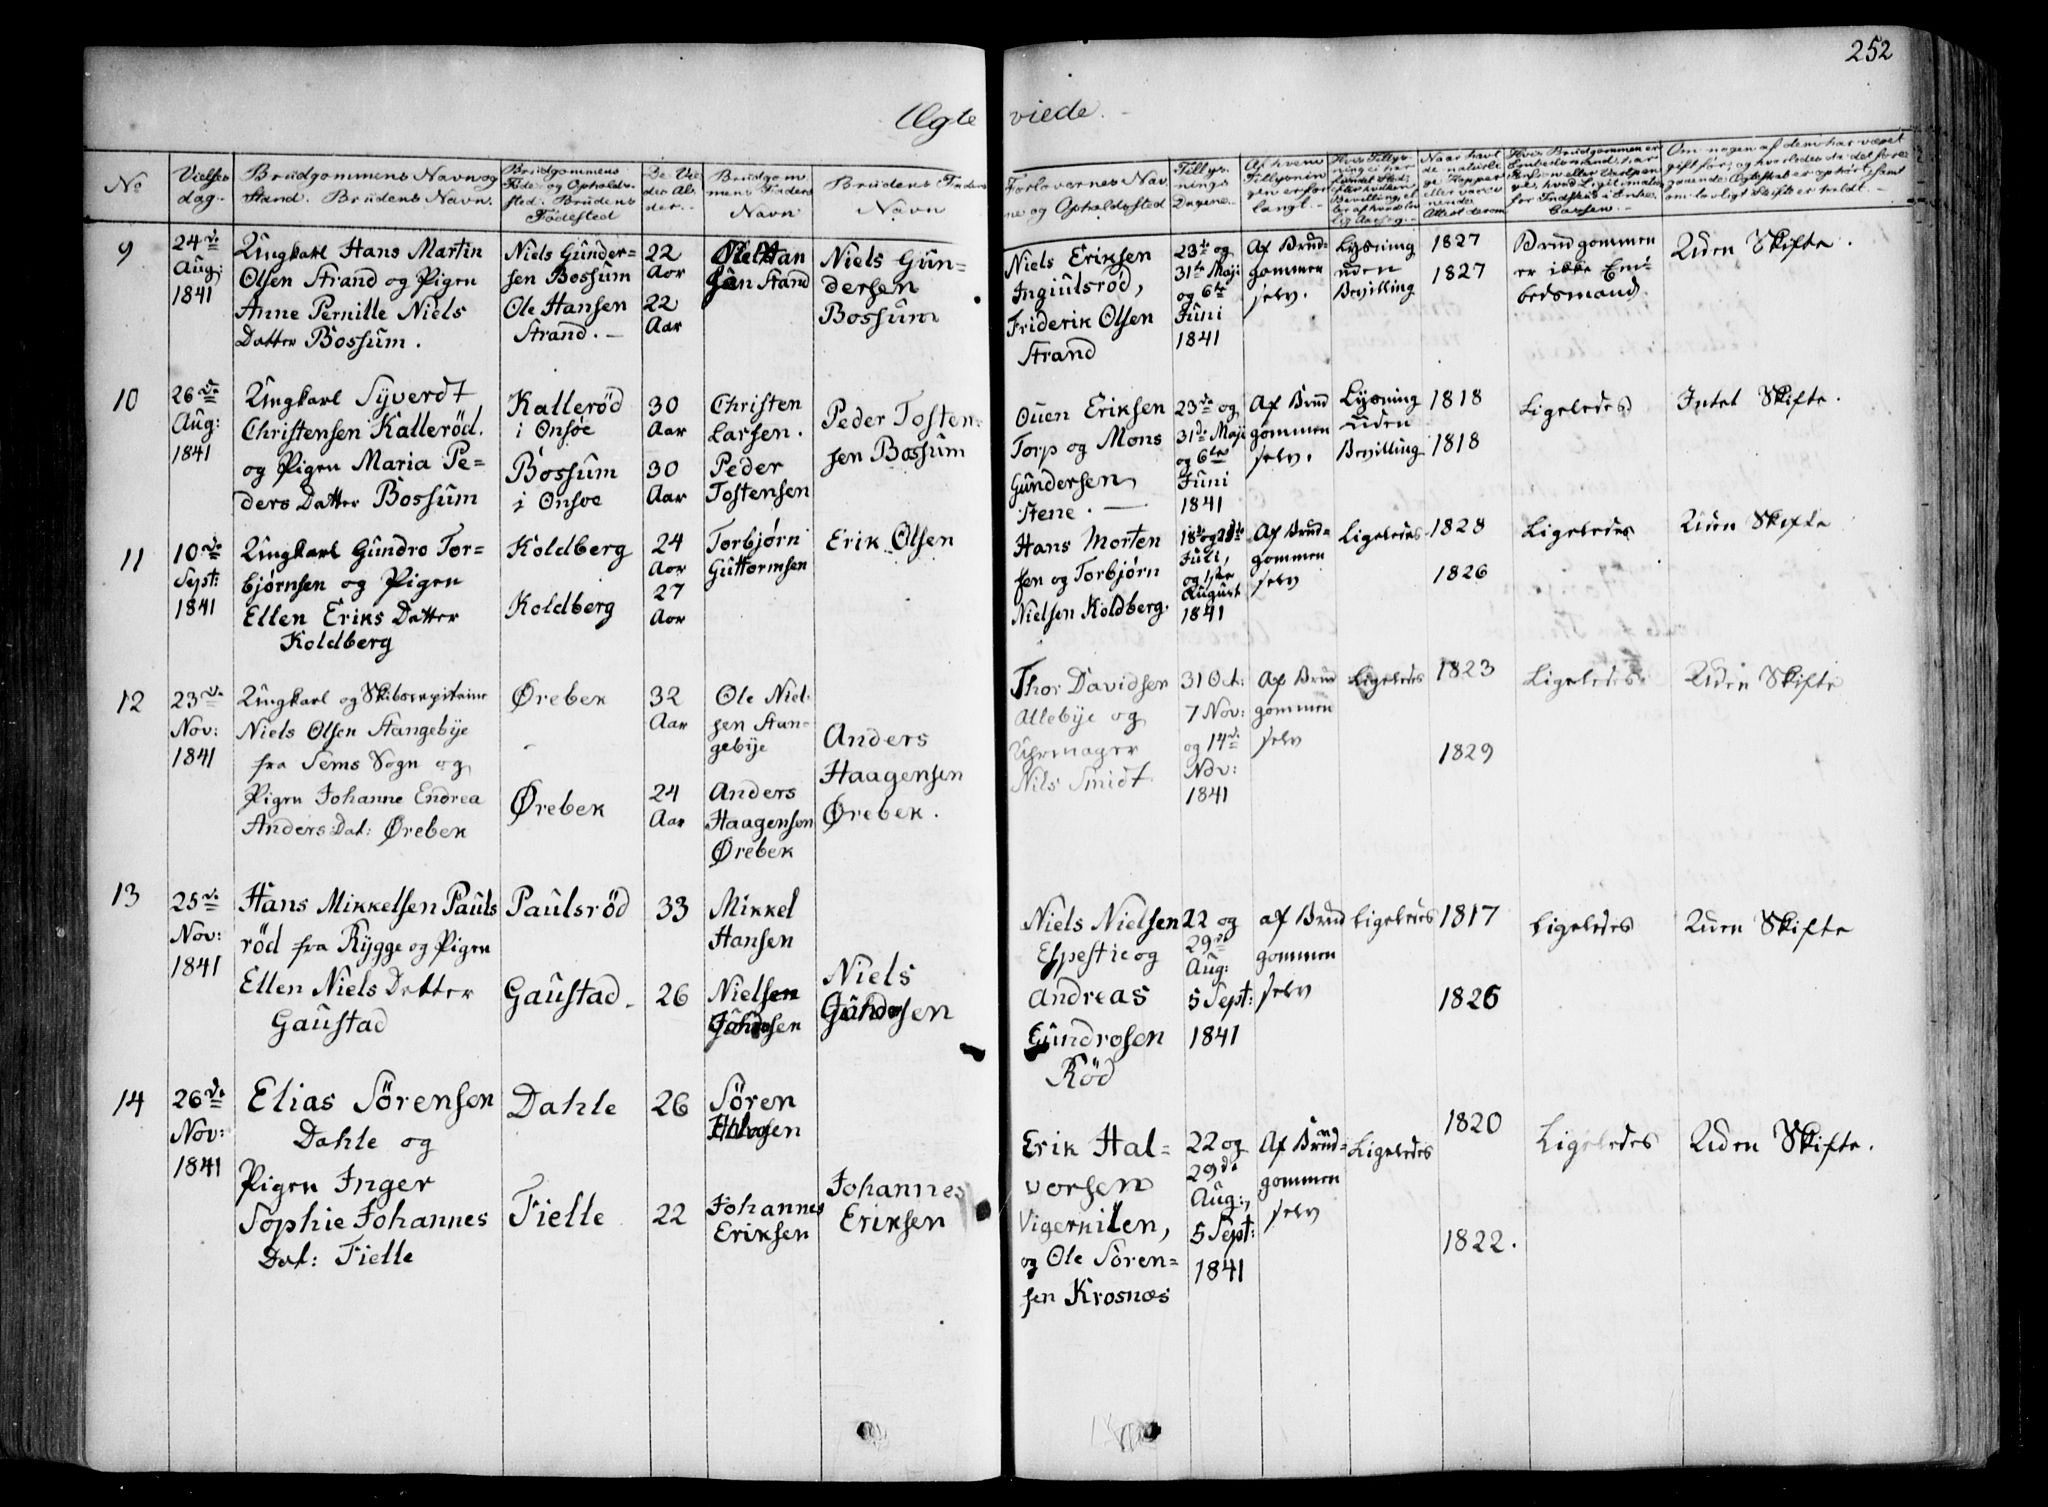 252
Ægte viede.
No
Vielses dag.
Brudgommens Navn og Stand. Brudens Navn.
Brudgommens Føde- og Opholdssted. Brudens Fødested
De Viedes Alder.
Brudgommens Faders Navn
Brudens Faders Navn
Forlovernes Navne og Opholdssted
Tillysnings Dagene.
Af hvem Tillysningen er forlangt.
9
24de Aug: 1841
Ungkarl Hans Martin
Olsen Strand og Pigen
Anne Pernille Niels
Datter Bossum.
Niels Gunder-
sen Bossum
Ole Hansen
Strand.
22
Aar
22
Aar
Ole Han
sen Strand
Niels Gün-
dersen
Bossum
Niels Eriksen
Ingiulsrød,
Friderik Olsen
Strand
23de og
31te Maji
og 6te
Juni
1841
Af Brud-
gommen
selv.
Lysning
uden
Bevilling
1827
1827
Brudgommen
er ikke Em-
bedsmand.
Uden Skifte.
10
26de
Aug:
1841
Ungkarl Syverdt
Christensen Kalleröd.
og Pigen Maria Pe-
ders Datter Bossum
Kallerød
i Onsøe
Bossum
i Onsoe
30
Aar
30
Aar
Christen
Larsen.
Peder
Tostensen
Peder Tosten-
sen Bossum
Ouen Eriksen
Torp og Mons
Gundersen
Stene.
23de og
31de Maji
og 6te
Juni
1841
Af Brud
gommen
selv.
Lysning
uden
Bevilling
1818
1818
Ligeledes
Intet Skifte.
11
10de
Sept:
1841
Ungkarl Gundro Tor-
bjørnsen og Pigen
Ellen Eriks Datter
Koldberg
Koldberg
Koldberg
24
Aar
27
Aar
Torbjørn
Guttormsen
Erik Olsen
Hans Morten
sen og Torbjørn
Nielsen Koldberg.
18de og
Juli,
og 1ste
August
1841
Af Brud-
gommen
selv
Ligeledes
1828
1826
Ligeledes
Uden Skifte
12
23de
Nov:
1841
Ungkarl og Skibscapitaine
Niels Olsen Stangebije
fra Sems Sogn og
Pigen Johanne Endrea
Anders Dat: Ørebek
Ørebek
Ørebek
32
Aar
24
Aar
Ole Niel-
sen Stan-
gebije
Anders
Haagensen
Ørebek
Anders
Haagensen
Ørebek.
Thor Davidsen
Allebije og
Uhrmager
Nils Smidt
31 Oct:
7 Nov:
og 14de
Nov:
1841
Af Brud
gommen
selv
Ligeledes
1823
1829
Ligeledes
Uden Skifte
13
25de
Nov:
1841
Hans Mikkelsen Pauls
röd fra Rygge og Pigen
Ellen Niels Datter
Gaustad
Paulsröd
Gaustad.
33
26
Mikkel
Hansen
Nielsen
Niels
Niels Nielsen
Espestie og
Andreas
Gundrosen
Röd
22 og
29de
Aug:
5 Sept:
1841
af Brud
gommen
selv
Ligeledes
1817
1826
Ligeledes
Uden Skifte
14
26de
Nov:
1841
Elias Sörensen
Dahle og
Pigen Inger
Sophie Johannes
Dat: Fielle
Dahle
Fielle
26
22
Sören
Johannes
Eriksen
Johannes
Eriksen
Erik Hal-
vorsen
Vigerkilen,
og Ole Sören-
sen Krosnæs
22 og
29de
Aug:,
5 Sept:
1841
Af Brud-
gommen
selv
Ligeledes
1820
1822.
Ligeledes
Uden Skifte.